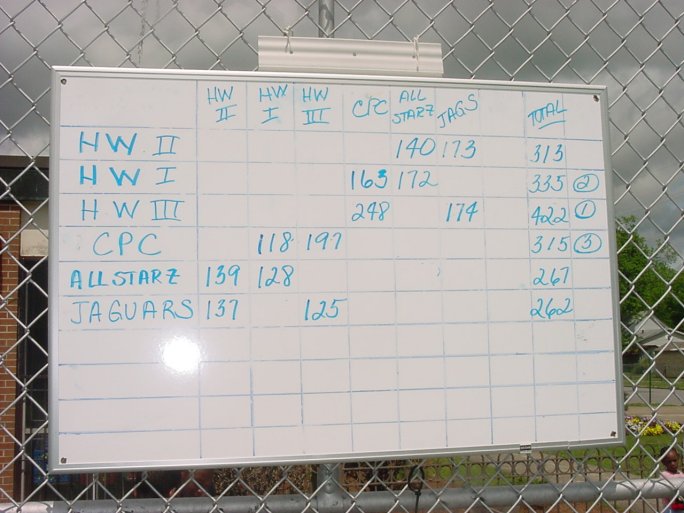 HW II HW I HW III CPC ALL STARZ JAGS TOTAL
HW II 140 173 313
HW I 163 172 335 2
HW III 248 174 422 1
CPC 118 197 315 3
ALLSTARZ 139 128 267
JAGUARS 137 125 262